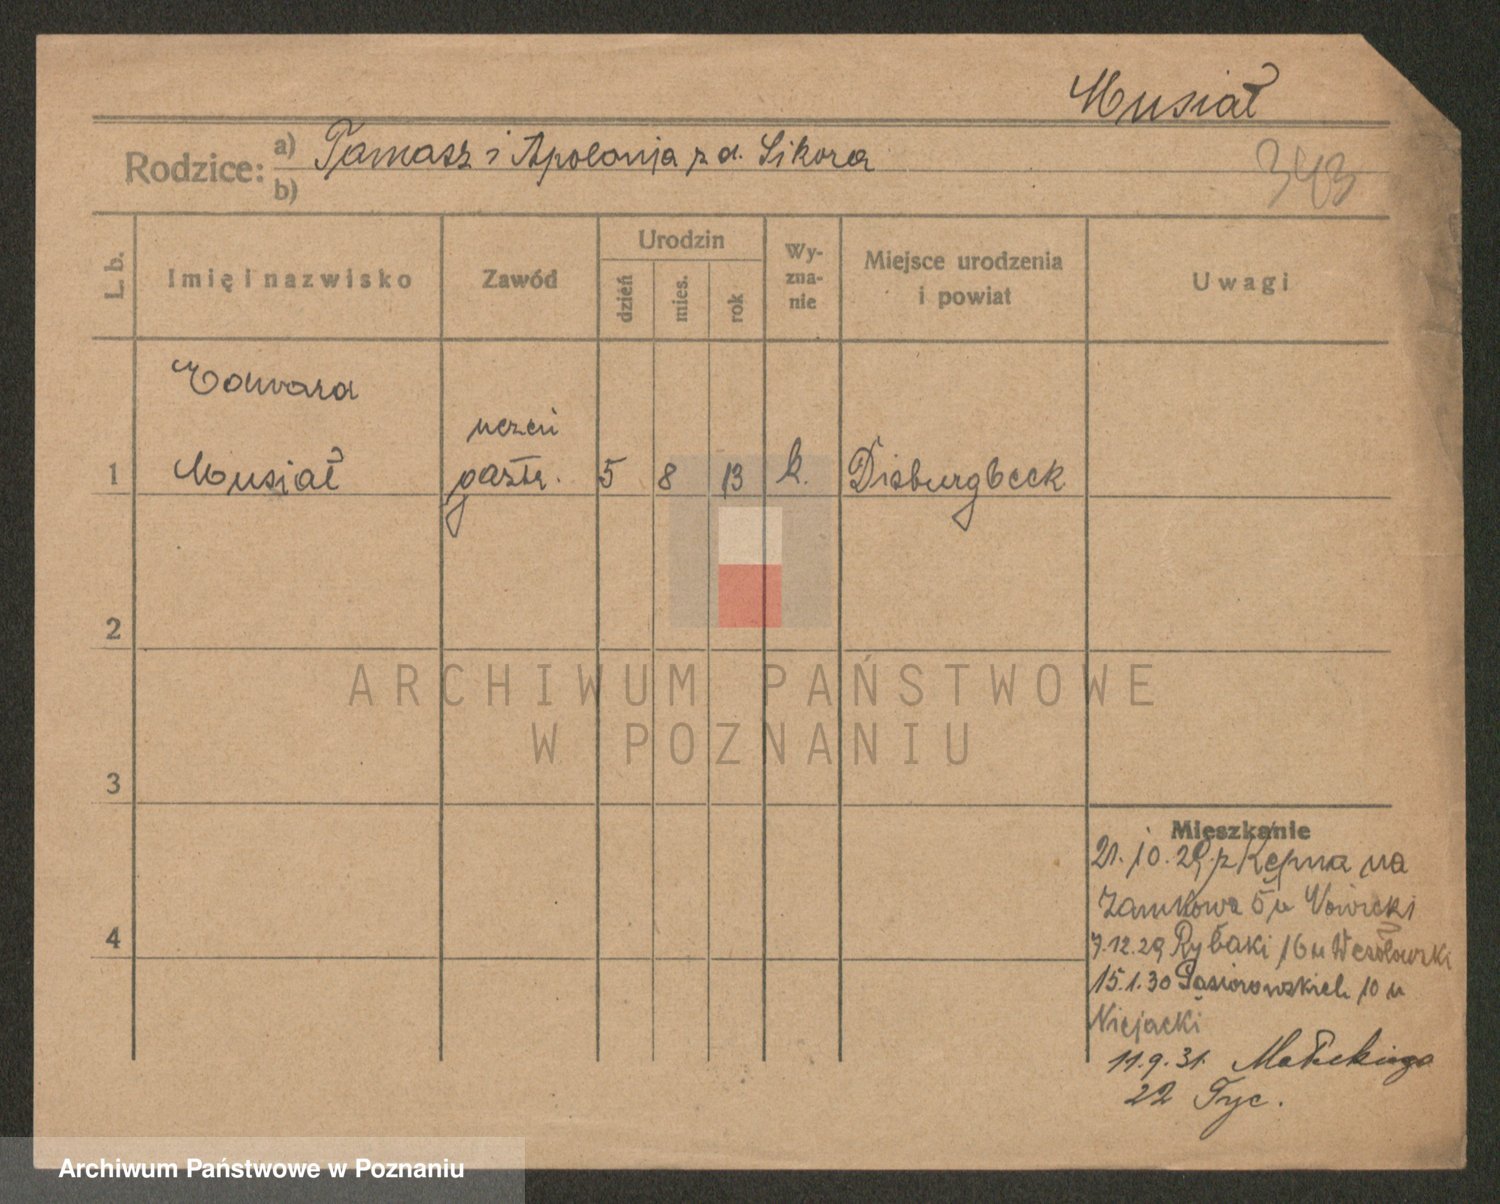 Musiał
343
Rodzice: a) Tomasz i Apolonja z d. Sikora
b)
L. b.
Imię i nazwisko
Zawód
Urodzin
dzień
mies.
rok
Wy-
zna-
nie
Miejsce urodzenia
i powiat
Uwagi
Edward
uczeń
1 Musiał gastr. 5 8 13 k. Disburgbeck
2
3
4
ARCHIWUM PAŃSTWOWE
W POZNANIU
Mieszkanie
21.10.29 z Kępna na
Zamkowa 5 u
7.12.29 Rybaki 16 u Wesołowski
15.1.30 Gąsiorowskich 10 u
Niejacki
11.9.31. Małeckiego
22 Tyc.
Archiwum Państwowe w Poznaniu